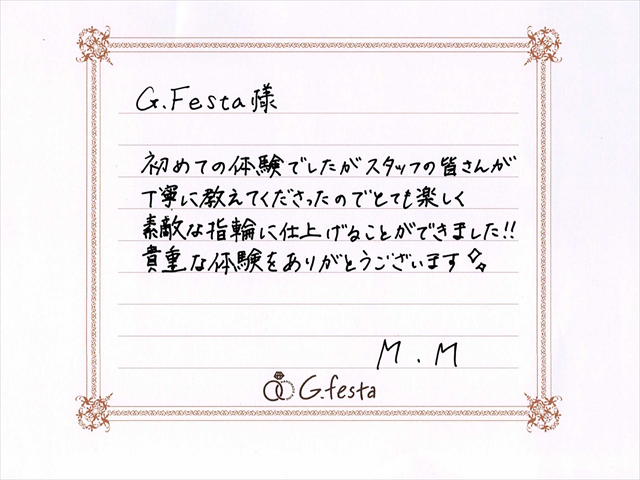 G.Festa様
初めての体験でしたがスタッフの皆さんが
丁寧に教えてくださったのでとても楽しく
素敵な指輪に仕上げることができました!!
貴重な体験をありがとうございます
M.M
G.festa